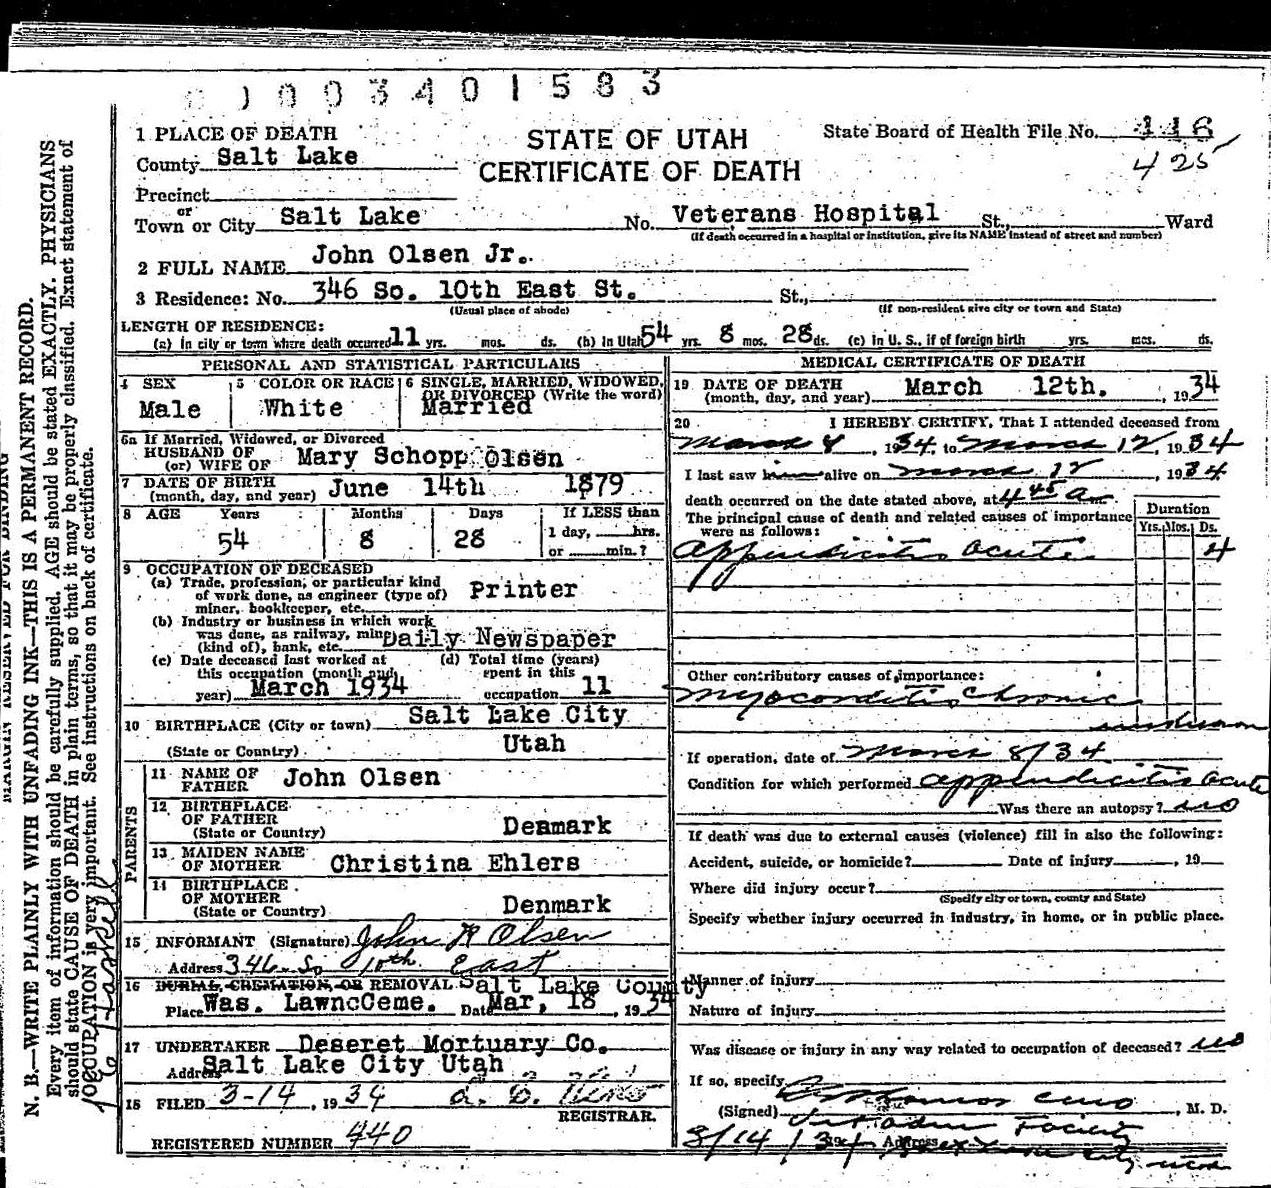 0003401583
STATE OF UTAH
CERTIFICATE OF DEATH
State Board of Health File No. 116
425
1 PLACE OF DEATH
County Salt Lake
Precinct
or
Town or City Salt Lake No. Veterans Hospital St., Ward
(If death occurred in a hospital or institution, give its NAME instead of street and number)
2 FULL NAME John Olsen Jr.
3 Residence: No. 346 So. 10th East St. St.,
(Usual place of abode) (If non-resident give city or town and State)
LENGTH OF RESIDENCE:
(a) In city or town where death occurred 11 yrs. mos. ds. (b) In Utah 54 yrs. 8 mos. 28 ds. (c) In U. S., if of foreign birth yrs. mos. ds.
PERSONAL AND STATISTICAL PARTICULARS
4 SEX 5 COLOR OR RACE 6 SINGLE, MARRIED, WIDOWED,
OR DIVORCED (Write the word)
Male White Married
6a If Married, Widowed, or Divorced
HUSBAND OF
(or) WIFE OF Mary Schopp Olsen
7 DATE OF BIRTH
(month, day, and year) June 14th 1879
8 AGE Years Months Days If LESS than
1 day, hrs.
or min.?
54 8 28
9 OCCUPATION OF DECEASED
(a) Trade, profession, or particular kind
of work done, as engineer (type of)
miner, bookkeeper, etc. Printer
(b) Industry or business in which work
was done, as railway, mine
(kind of), bank, etc. Daily Newspaper
(c) Date deceased last worked at
this occupation (month and
year) March 1934
(d) Total time (years)
spent in this
occupation 11
10 BIRTHPLACE (City or town) Salt Lake City
(State or Country) Utah
PARENTS
11 NAME OF
FATHER John Olsen
12 BIRTHPLACE
OF FATHER
(State or Country) Denmark
13 MAIDEN NAME
OF MOTHER Christina Ehlers
14 BIRTHPLACE
OF MOTHER
(State or Country) Denmark
15 INFORMANT (Signature) John R Olsen
Address 346 So 10th East
16 BURIAL, CREMATION, OR REMOVAL Salt Lake County
Place Was. LawncCeme. Date Mar, 18, 1934
17 UNDERTAKER Deseret Mortuary Co.
Address Salt Lake City Utah
18 FILED 3-14, 1934
REGISTRAR.
REGISTERED NUMBER 440
MEDICAL CERTIFICATE OF DEATH
19 DATE OF DEATH
(month, day, and year) March 12th., 1934
20 I HEREBY CERTIFY, That I attended deceased from
March 8, 1934, to March 12, 1934
I last saw him alive on March 12, 1934
death occurred on the date stated above, at 4 45 a m
The principal cause of death and related causes of importance
were as follows:
Duration
Yrs. Mos. Ds.
appendicitis acute 4
Other contributory causes of importance:
myocarditis chronic
If operation, date of March 8/34
Condition for which performed appendicitis acute
Was there an autopsy? no
If death was due to external causes (violence) fill in also the following:
Accident, suicide, or homicide? Date of injury, 19
Where did injury occur?
(Specify city or town, county and State)
Specify whether injury occurred in industry, in home, or in public place.
Manner of injury
Nature of injury
Was disease or injury in any way related to occupation of deceased? no
If so, specify
(Signed), M. D.
Vet Adm Facility
3/14/34 Address
N. B.—WRITE PLAINLY WITH UNFADING INK—THIS IS A PERMANENT RECORD.
Every item of information should be carefully supplied. AGE should be stated EXACTLY. PHYSICIANS
should state CAUSE OF DEATH in plain terms, so that it may be properly classified. Exact statement of
OCCUPATION is very important. See instructions on back of certificate.